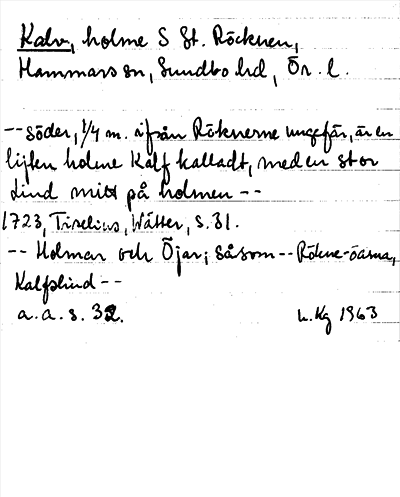 Kalv, holme S St. Röcknen,
Hammars sn, Sundbo hd, Ör. l.
-- söder, 1/4 m. ifrån Röknerne ungefär, är en
lijten holme Kalf kalladt, med en stor
Lind mitt på holmen --
1723, Tiselius, Wätter, s. 31.
-- Holmar och Öjar; såsom -- Rökne-öarna,
Kalfslind --
a. a. s. 32.
L. Kg 1963